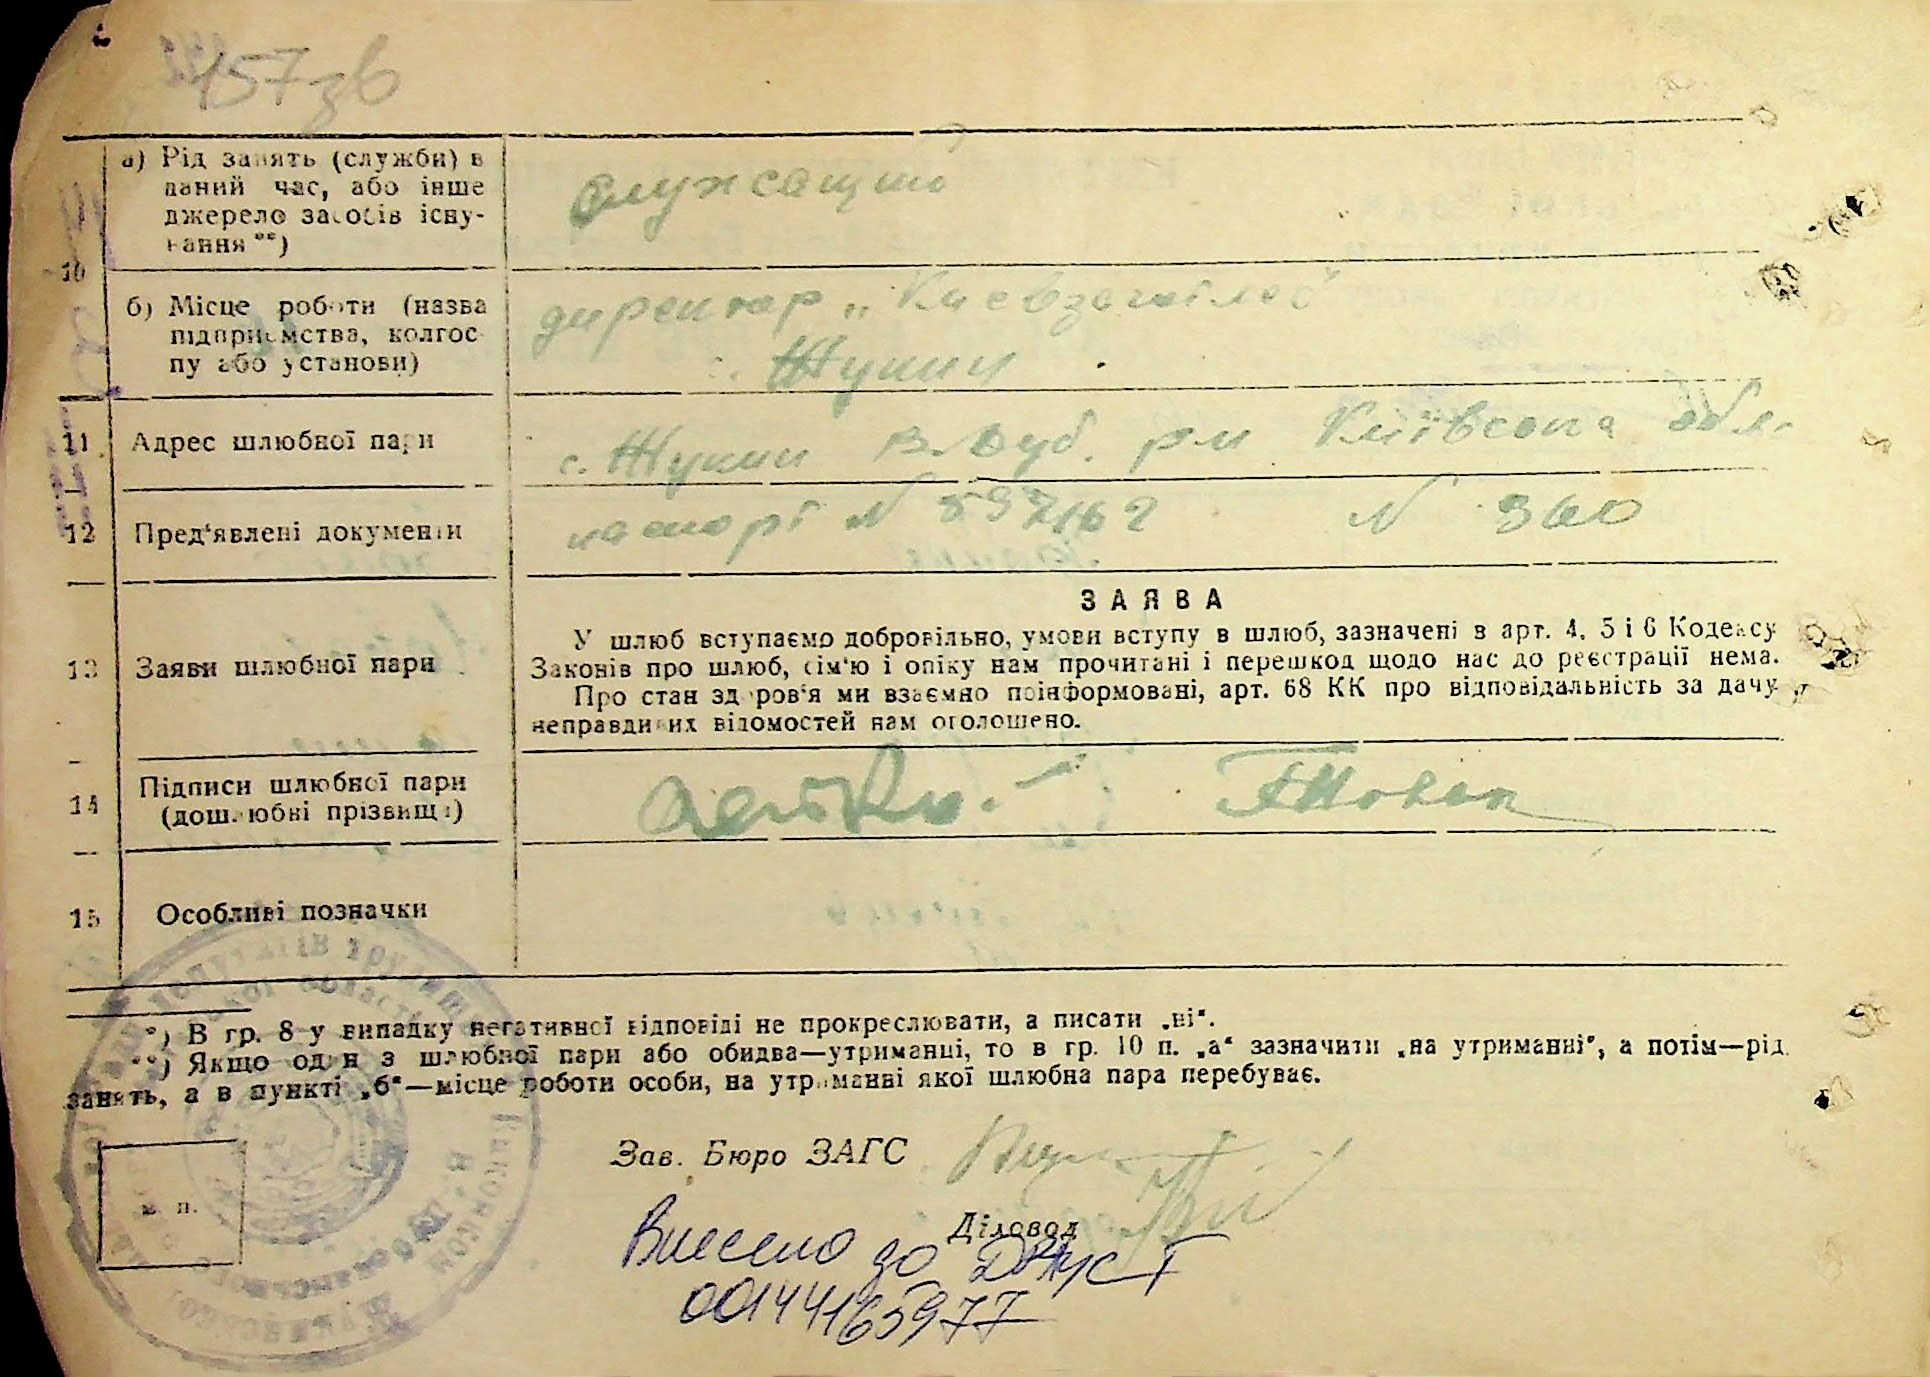 157зв
а) Рід занять (служби) в
даний час, або інше
джерело засобів існу-
вання **)
служесащий
10
б) Місце роботи (назва
підприємства, колгос-
пу або установи)
директор „Києвзагатліс"
Жукин
11 Адрес шлюбної пари
с. Жукин В.Дуб. р-н Київська обл.
12 Пред'явлені документи
паспорт N 597162 N 360
13 Заяви шлюбної пари
ЗАЯВА
У шлюб вступаємо добровільно, умови вступу в шлюб, зазначені в арт. 4, 5 і 6 Кодексу
Законів про шлюб, сім'ю і опіку нам прочитані і перешкод щодо нас до реєстрації нема.
Про стан здоров'я ми взаємно поінформовані, арт. 68 КК про відповідальність за дачу
неправдивих відомостей нам оголошено.
14 Підписи шлюбної пари
(дошлюбні прізвища)
15 Особливі позначки
*) В гр. 8 у випадку негативної відповіді не прокреслювати, а писати „ні".
**) Якщо один з шлюбної пари або обидва—утриманці, то в гр. 10 п. „а" зазначити „на утриманні", а потім—рід
занять, а в пункті „б"—місце роботи особи, на утриманні якої шлюбна пара перебуває.
Зав. Бюро ЗАГС
м. п.
Діловод
Внесено до ДРАЦСГ
00144165977